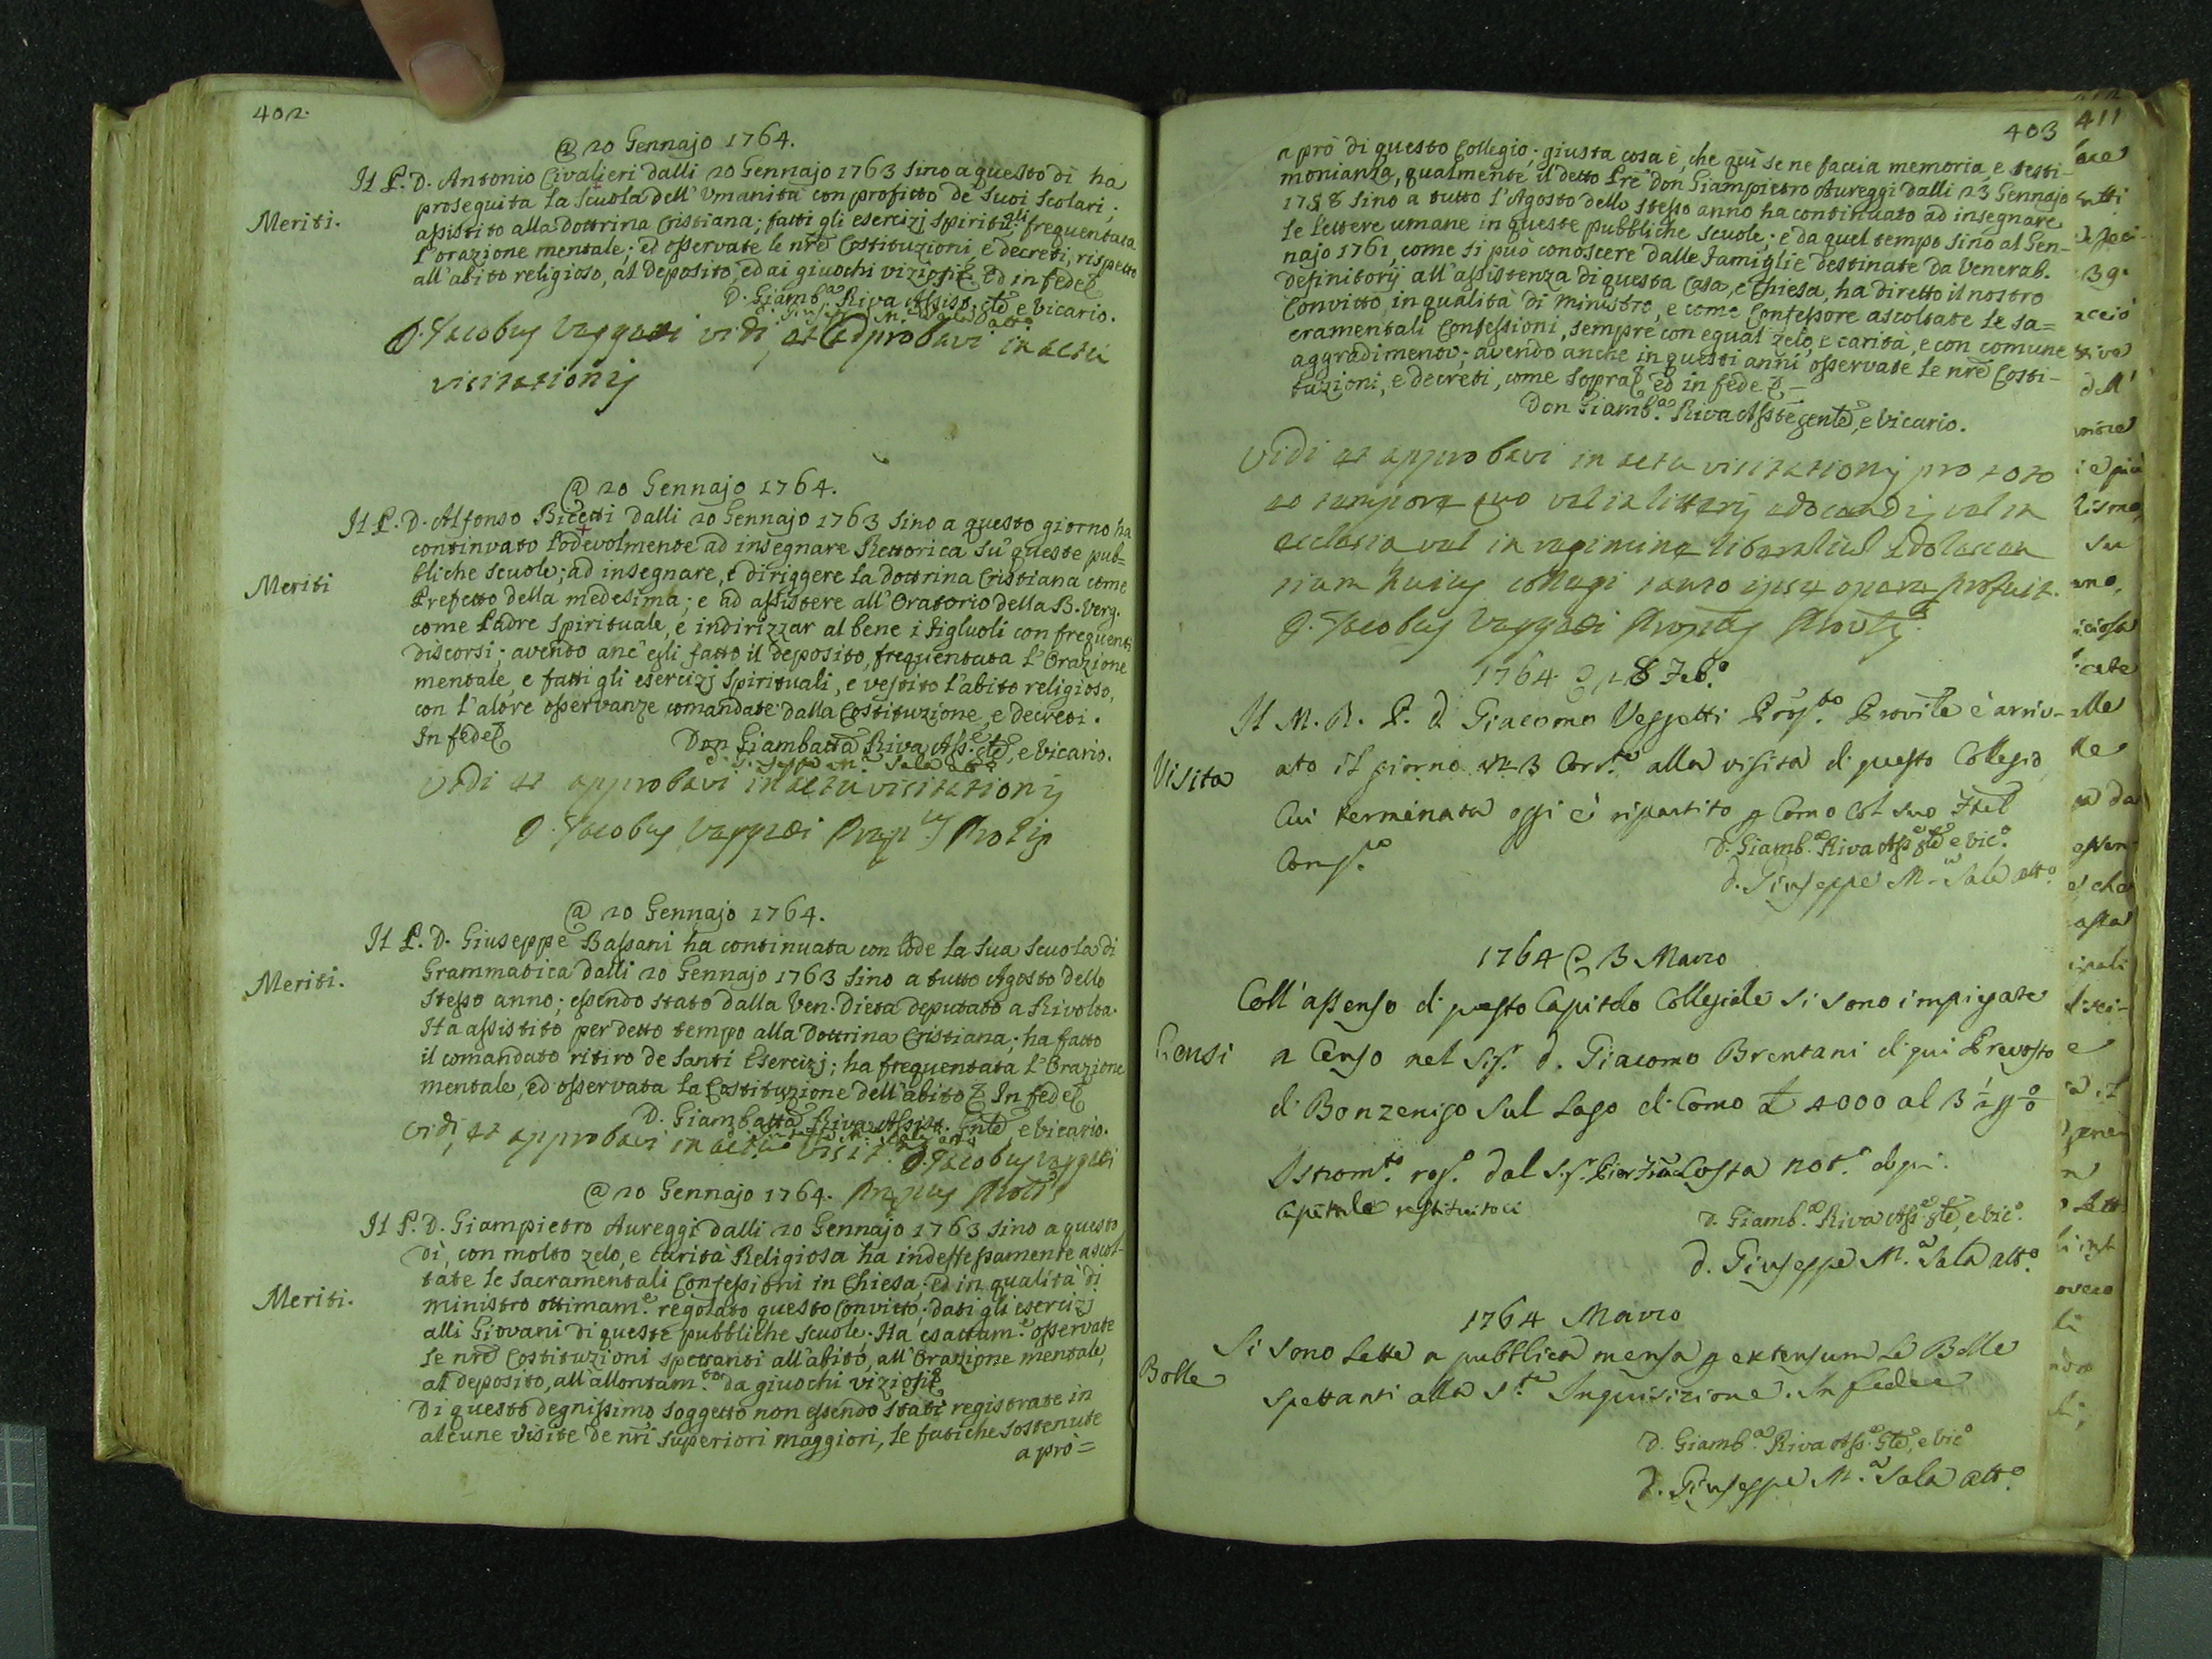 402.
@ 20 Gennajo 1764.
Il P. D. Antonio Civalieri dalli 20 Gennajo 1763 sino a questo di ha
proseguita la Scuola dell' Umanità con profitto de suoi scolari;
Meriti.
assistito alla dottrina Cristiana; fatti gli esercizj spirit.li frequentata
l'orazione mentale; ed osservate le nre Costituzioni, e decreti, rispetto
all'abito religioso, al deposito, ed ai giuochi viziosi ed in fede
D. Giamb.a Riva Assist.gte e vicario.
D. Jacobus vidi, et adprobavi in actu
visitationis
@ 20 Gennajo 1764.
Il P. D. Alfonso Bicetti dalli 20 Gennajo 1763 sino a questo giorno ha
continvato lodevolmente ad insegnare Rettorica su queste pub=
bliche scuole; ad insegnare, e diriggere la dottrina Cristiana come
Meriti
Prefetto della medesima; e ad assistere all'Oratorio della B. Verg.
come Padre Spirituale, e indirizzar al bene i figluoli con frequenti
discorsi; avendo anc' egli fatto il deposito, frequentata l'Orazione
mentale, e fatti gli esercizj spirituali, e vestito l'abito religioso,
con l'altre osservanze comandate dalla Costituzione, e decreti.
In fede
Don Giambatta Riva Ass.e gte, e vicario.
Vidi et approbavi in actu visitationis
D. Jacobus
@ 20 Gennajo 1764.
Il P. D. Giuseppe Bassani ha continuata con lode la sua scuola di
Grammatica dalli 20 Gennajo 1763 sino a tutto Agosto dello
Meriti.
stesso anno; essendo stato dalla Ven. Dieta deputato a Rivolta.
Ha assistito per detto tempo alla Dottrina Cristiana; ha fatto
il comandato ritiro de Santi Esercizj; ha frequentata l'Orazione
mentale, ed osservata la Costituzione dell'abito In fede
D. Giambatta Riva Assist. gnte, e vicario.
vidi, et approbavi in actu visit. D. Jacobus
@ 20 Gennajo 1764.
Il P. D. Giampietro Aureggi dalli 20 Gennajo 1763 sino a questo
dì, con molto zelo, e carità Religiosa ha indefessamente ascol-
tate le sacramentali Confessioni in Chiesa; ed in qualità di
Meriti.
ministro ottimam.e regolato questo Convitto; dati gli esercizj
alli Giovani di queste pubbliche scuole. Ha esattam.e osservate
le nre Costituzioni spettanti all'abito, all'Orazione mentale,
al deposito, all'allontam.to da giuochi viziosi
Di questo degnissimo soggetto non essendo stati registrate in
alcune visite de nri superiori maggiori, le fatiche sostenute
a prò=
403
411
a prò di questo Collegio; giusta cosa è, che quì se ne faccia memoria, e testi-
monianza, qualmente il detto Pre Don Giampietro Aureggi dalli 23 Gennajo
1758 sino a tutto l'Agosto dello stesso anno ha continuato ad insegnare
le lettere umane in queste pubbliche scuole; e da quel tempo sino al Gen-
najo 1761, come si può conoscere dalle Famiglie destinate da Venerab.
definitorij all'assistenza di questa Casa, e Chiesa, ha diretto il nostro
Convitto in qualità di Ministro, e come Confessore ascoltate le sa=
cramentali Confessioni, sempre con egual zelo, e carità, e con comune
aggradimento; avendo anche in questi anni osservate le nre Costi-
tuzioni, e decreti, come sopra ed in fede
Don Giamb.a Riva Asste gente, e vicario.
Vidi et approbavi in actu visitationis pro toto
eo tempore quo vel in litteris edocendis vel in
ecclesia vel in regimine
huius collegi tanto opera profuit.
D. Jacobus
1764 8 Feb.o
Il M. R. P. d. Giacomo Veggetti Prov.le è arriv-
Visita
ato il giorno 3 Corr.e alla visita di questo Collegio
Cui terminata oggi è ripartito p Como col suo
Comp.o
D. Giamb.a Riva Ass.e gte e vic.o
d. Giuseppe M.a Sala att.o
1764 3 Marzo
Coll'assenso di questo Capitolo Collegiale si sono impiegate
Censi
a Censo nel Sig.r d. Giacomo Brentani di qui Prevosto
di Bonzenigo sul Lago di Como 4000 al 3 ½
Istrom.to rog.o dal Sig.r Costa not.o di qui.
Capitale restituitoci
D. Giamb.a Riva Ass.e gte, e vic.o
d. Giuseppe M.a Sala att.o
1764 Marzo
Si sono lette a pubblica mensa p extensum le Bolle
Bolle
spettanti alla S.ta Inquisizione. In fede
D. Giamb.a Riva Ass.e gte, e vic.o
d. Giuseppe M.a Sala att.o